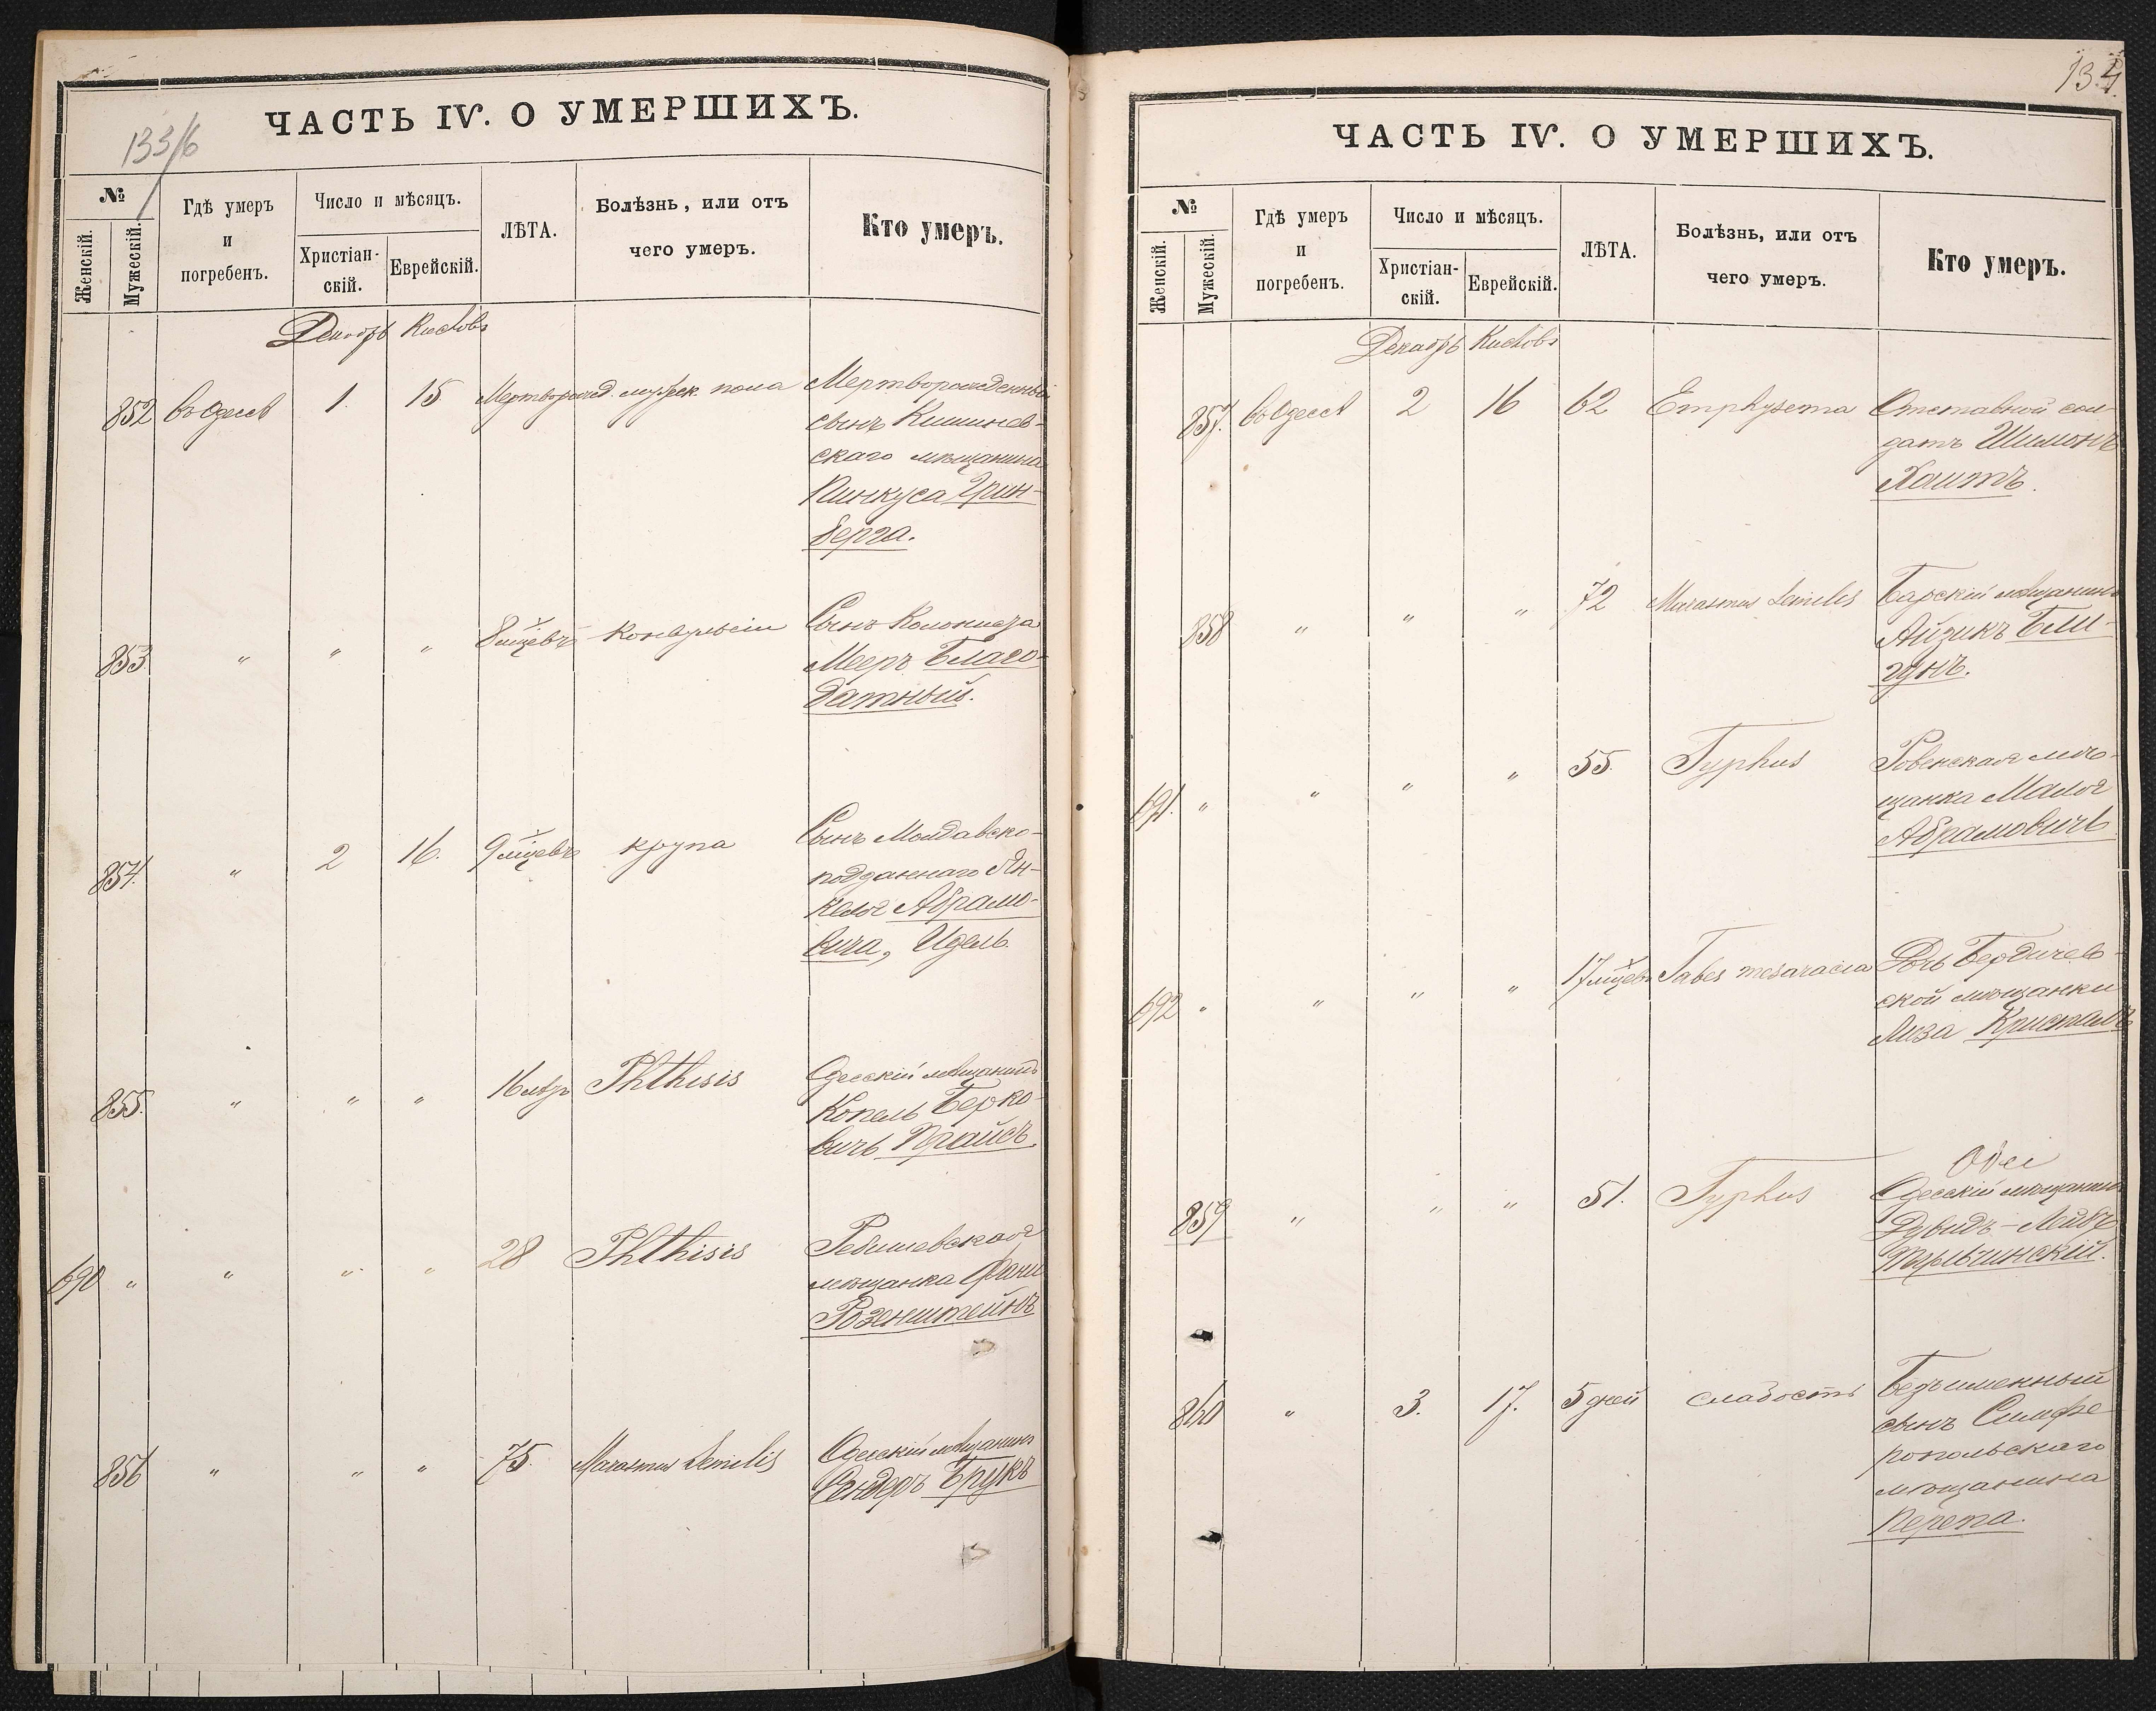 133/б
ЧАСТЬ IV. О УМЕРШИХЪ.
№
Женскій.
Мужескій.
Гдѣ умеръ
и
погребенъ.
Число и мѣсяцъ.
Христіан-
скій.
Еврейскій.
ЛѢТА.
Болѣзнь, или отъ
чего умеръ.
Кто умеръ.
Декабрь Кислевъ
852 въ Одессѣ 1. 15 Мертворожд. мужеск. пола Мертворожденный
сынъ Кишинев-
скаго мѣщанина
Пинкуса Грин-
берга.
853 " " " 8 мѣсяцевъ Конвульсіи Сынъ Колониста
Мееръ Благо-
датный.
854. " 2 16. 9 мѣсяцевъ крупа Сынъ Молдавско-
подданнаго Ян-
келя Абрамо-
вича, Идель
855. " " " 16 Phthisis Одесскій мѣщанинъ
Копель Берко-
вичъ Прайсъ
690 " " " " 28 Phthisis
мѣщанка Фани
Розенштейнъ
856 " " " 75. Marasmus Senilis Одесскій мѣщанинъ
Сендеръ Брукъ
134.
ЧАСТЬ IV. О УМЕРШИХЪ.
№
Женскій.
Мужескій.
Гдѣ умеръ
и
погребенъ.
Число и мѣсяцъ.
Христіан-
скій.
Еврейскій.
ЛѢТА.
Болѣзнь, или отъ
чего умеръ.
Кто умеръ.
Декабрь Кислевъ
857. въ Одессѣ 2 16 62 Emphysema Отставной сол-
датъ Шимонъ
Хаитъ.
858 " " " 72 Marasmus Senilis Барскій мѣщанинъ
Айзикъ Бли-
гунъ.
691. " " " " 55. Typhus Ровенская мѣ-
щанка Маля
Абрамовичъ
692 " " " " 17 мѣсяцевъ Tabes mesaraica Дочь Бердичев-
ской мѣщанки
Лиза Кристалъ
859 " " " 51. Typhus Одесскій мѣщанинъ
Дувидъ-Лейбъ
860 " 3. 17. 5 дней слабость Безъименный
сынъ Симфе-
ропольскаго
мѣщанина
Перепа.